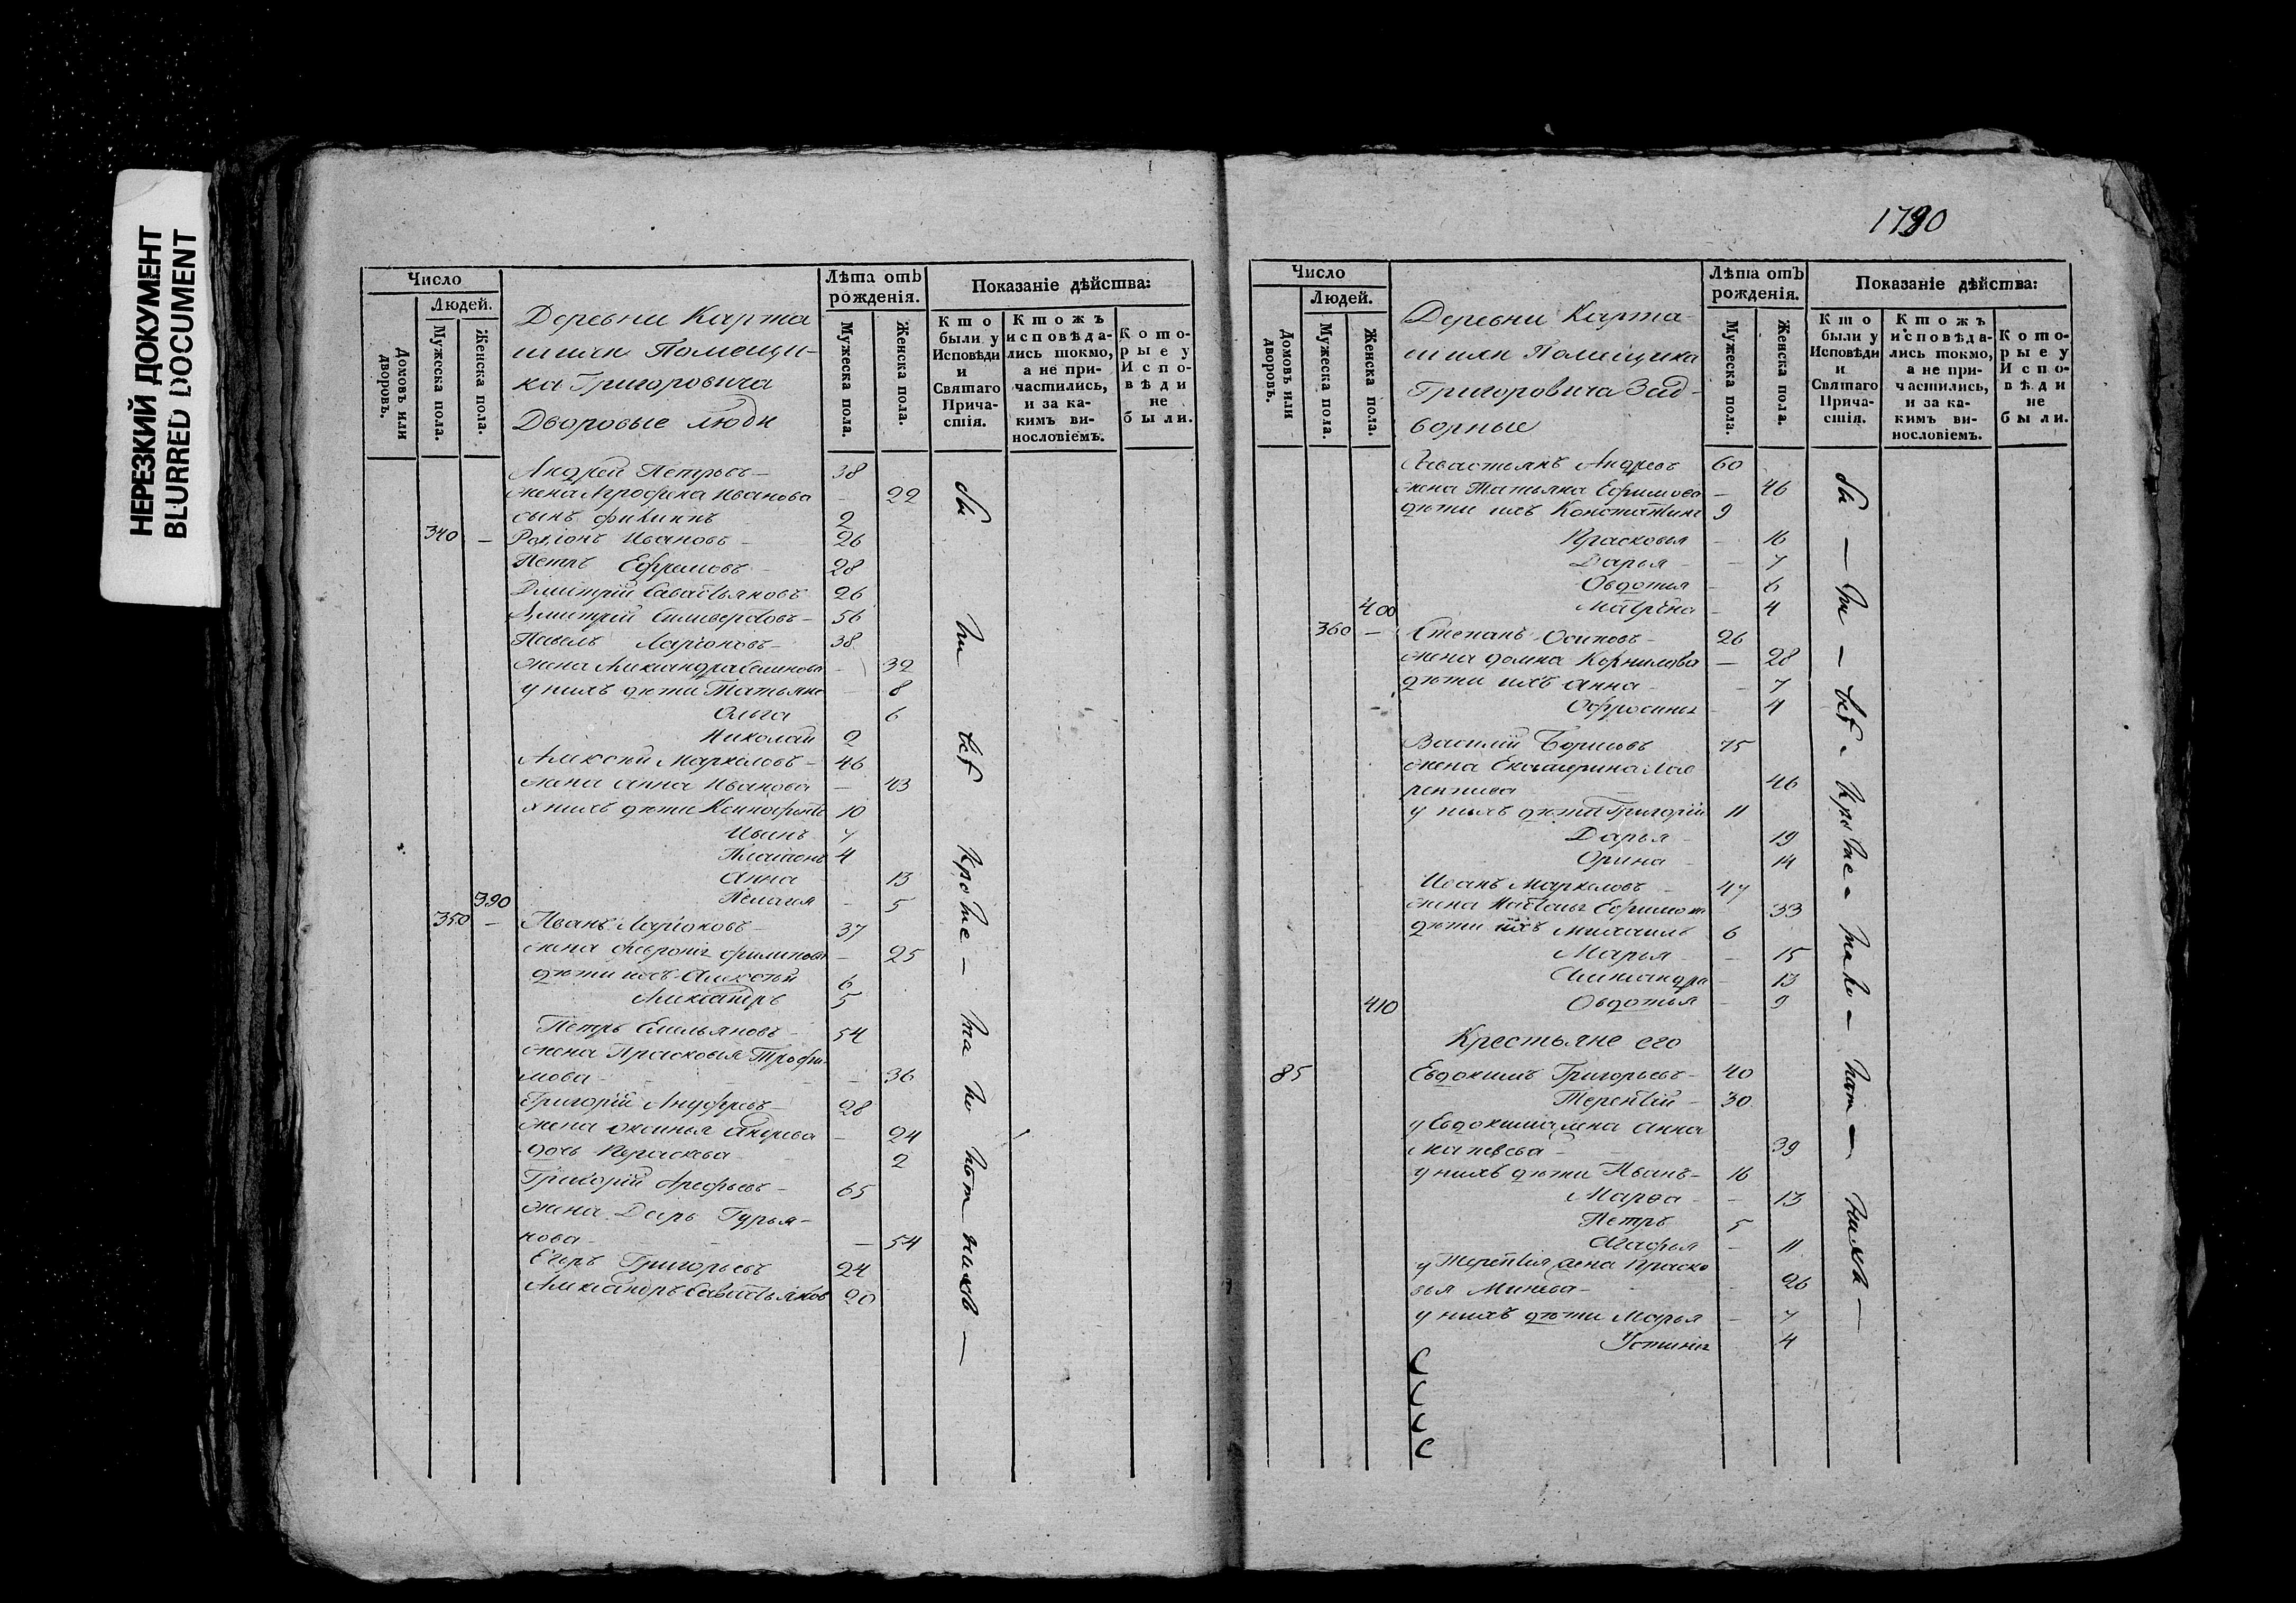 НЕРЕЗКИЙ ДОКУМЕНТ
BLURRED DOCUMENT
Число
Людей.
Домовъ или дворовъ.
Мужеска пола.
Женска пола.
Деревни Карта
шиян Помещи-
ка Григоровича
Дворовые люди
Лѣта отъ рожденія.
Мужеска пола.
Женска пола.
Показаніе дѣйства:
Кто были у Исповѣди и Святаго Прича-стія.
Ктожъ исповѣда-лись токмо, а не при-частились, и за ка-кимъ ви-нословіемъ.
Кото-рые у Испо-вѣди не были.
Андрей Петровъ 38
жена Иванова 22
сынъ Филипъ 2
340 Ивановъ 26
Петръ Ефремовъ 28
Дмитрий Саватьяновъ 26
Дмитрий Силиверстовъ 56
Павелъ Ларионовъ 38
жена Александра 32
у нихъ дѣти Татьяна 8
Ольга 6
Николай 2
Алексѣй Маркеловъ 46
жена Анна Иванова 43
у нихъ дѣти 10
Иванъ 7
Платонъ 4
Анна 13
390 Пелагея 5
350 Иванъ Ларионовъ 37
жена Феврония Филипова 25
дѣти ихъ Алексѣй 6
Александръ 5
Петръ Емельяновъ 54
жена Прасковья Трофи-
мова 36
Григорий 28
жена Андреева 24
дочь 2
Григорий Арефьевъ 65
жена Дарь Гурья-
нова 54
Егоръ Григорьевъ 24
Александръ Саватьянов 20
1790
Число
Людей.
Домовъ или дворовъ.
Мужеска пола.
Женска пола.
Деревни Карта-
шиян Помещика
Григоровича Зад-
ворные
Лѣта отъ рожденія.
Мужеска пола.
Женска пола.
Показаніе дѣйства:
Кто были у Исповѣди и Святаго Прича-стія.
Ктожъ исповѣда-лись токмо, а не при-частились, и за ка-кимъ ви-нословіемъ.
Кото-рые у Испо-вѣди не были.
Андревъ 60
жена Татьяна Ефимова 46
дѣти ихъ Константинъ 9
Прасковья 16
Дарья 7
Овдотья 6
400 Матрена 4
360 Степанъ Осиповъ 26
жена Домна Корнилова 28
дѣти ихъ Анна 7
Офросинья 4
Василий Борисовъ 75
жена Екатерина Лав
рентива 46
у нихъ дѣти Григорий 11
Дарья 19
Орина 14
Иванъ Маркеловъ 47
жена 33
дѣти ихъ Михаилъ 6
Марья 15
Александра 13
410 Овдотья 9
Крестьяне его
85 Евдокимъ Григорьевъ 40
Терентий 30
у Евдокима жена Анна
39
у нихъ дѣти Иванъ 16
Марѳа 13
Петръ 5
Агафья 11
у Терентия жена Праско
вья Минева 26
у нихъ дѣти Марья 7
Устинья 4